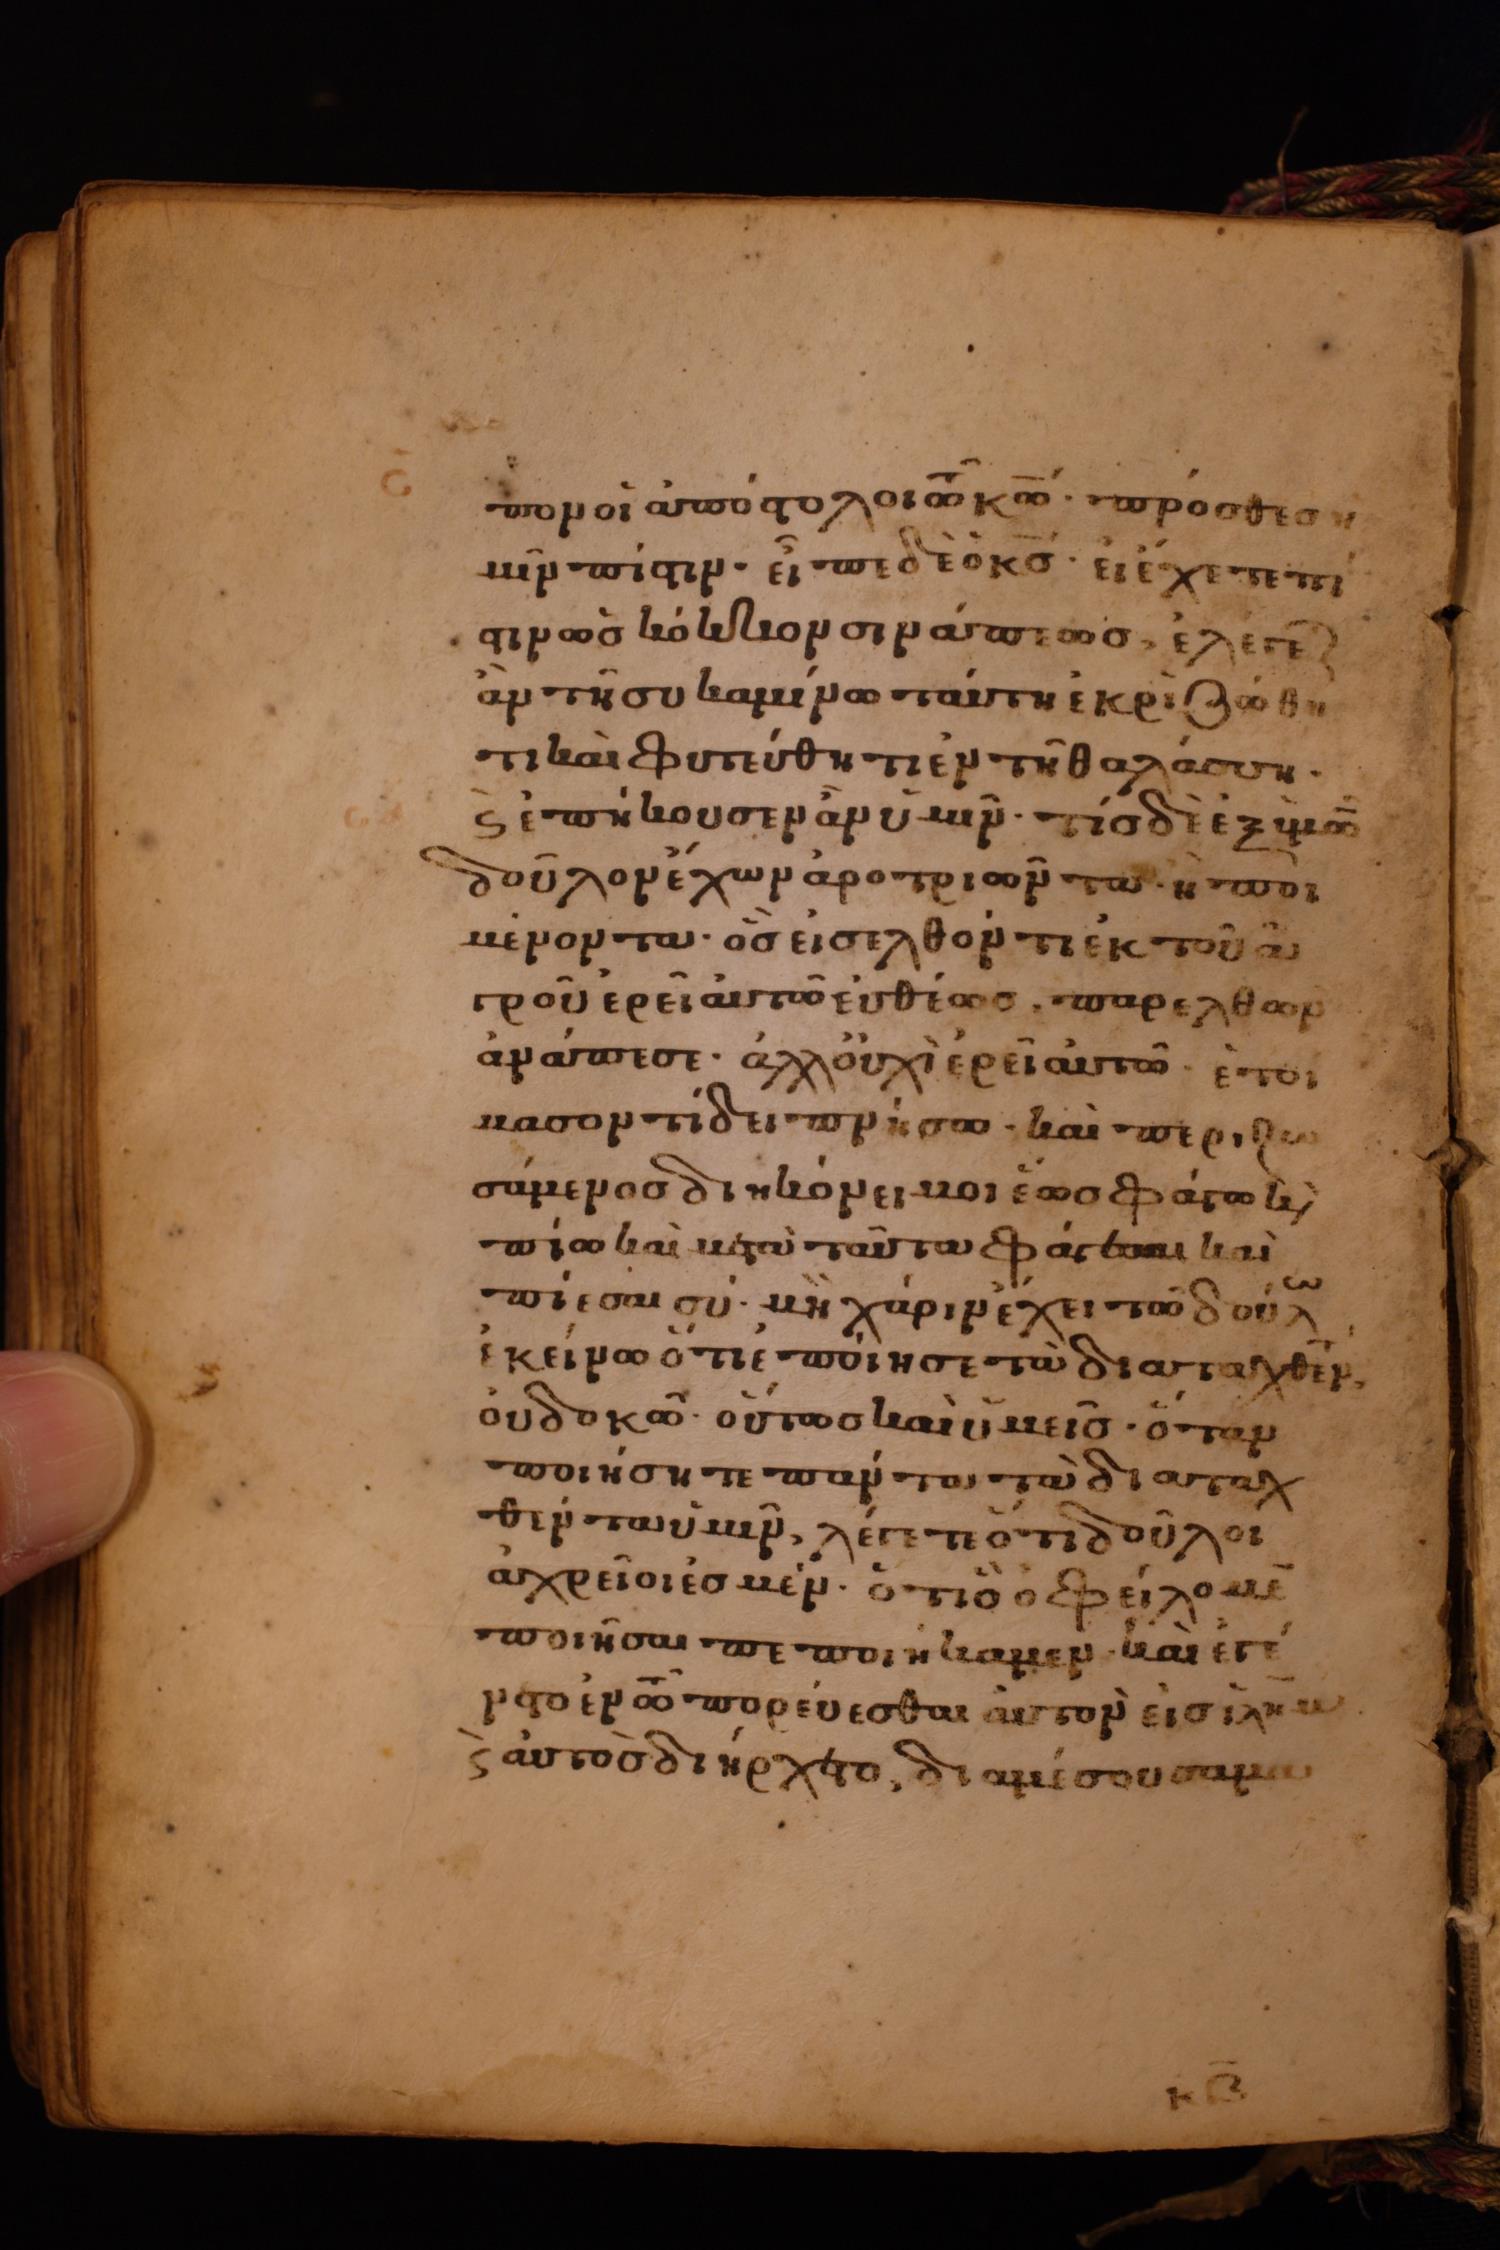 πον οἱ ἀπόστολοι τῶ κω̅· πρόσθεσ ἡ
μῖν πίστιν· εἶπε δὲ ὁ κς̅· εἰ ἔχετε πί
στιν ὡς κόκκον σινάπεως, ἐλέγετε
ἂν τῆ συκαμίνω ταύτη ἐκριζώθη
τι καὶ φυτεύθητι ἐν τῆ θαλάσση·
ϛ ἐπήκουσεν ἂν ὑμῖν· τίς δὲ ἐξ ὑμῶν
δοῦλον ἔχων ἀροτριῶντα· ἢ ποι
μένοντα· ὃς εἰσελθόντι ἐκ τοῦ ἀ
γροῦ ἐρεῖ αὐτῶ εὐθέως, παρελθων
ἀνάπεσε· ἀλλ οὐχὶ ἐρεῖ αὐτῶ· ἑτοί
μασον τί δειπνήσω· καὶ περιζω
σάμενος διηκόνει μοι ἕως φάγω κ
πίω καὶ μετὰ ταῦτα φάγεσαι καὶ
πίεσαι σύ· μὴ χάριν ἔχει τῶ δούλω
ἐκείνω ὅτι ἐποίησε τὰ διαταχθέν,
οὐ δοκῶ· οὕτως καὶ ὑμεῖς· ὅταν
ποιήσητε πάντα τὰ διαταχ
θέντα ὑμῖν, λέγετε ὅτι δοῦλοι
ἀχρεῖοι ἐσμέν· ὅτι ὃ ὀφείλομε̅
ποιῆσαι πεποιήκαμεν· καὶ ἐγέ
νετο ἐν τῶ πορεύεσθαι αὐτὸν εἰς ἰλημ
ϛ αὐτὸς διήρχετο, δια μέσου σαμα
κβ̅